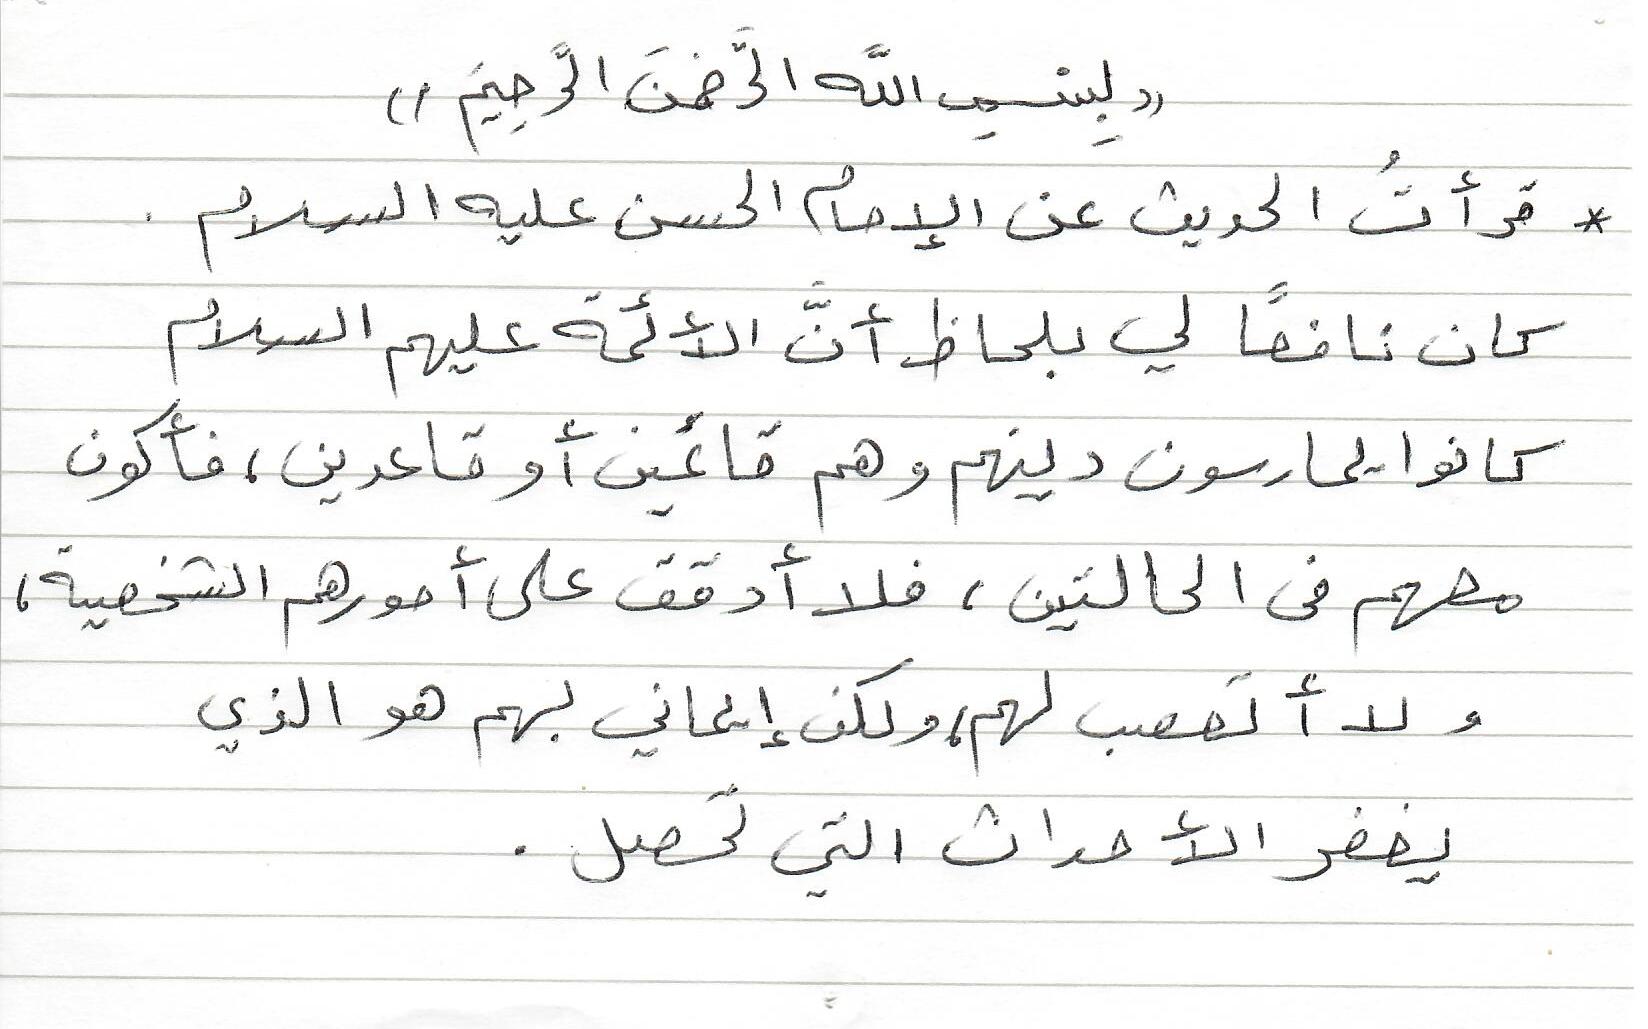 «بِسْمِ اللَّه الرَّحْمَن الرَّحِيمِ»
* قرأتُ الحديث عن الإمام الحسن عليه السلام .
كان نافعًا لي بلحاظ أنَّ الأئمة عليهم السلام
كانوا يمارسون دينهم وهم قائمين أو قاعدين، فأكون
معهم في الحالتين، فلا أدقق على أمورهم الشخصية،
ولا أتعصب لهم، ولكن إيماني بهم هو الذي
يغفر الأحداث التي تحصل .